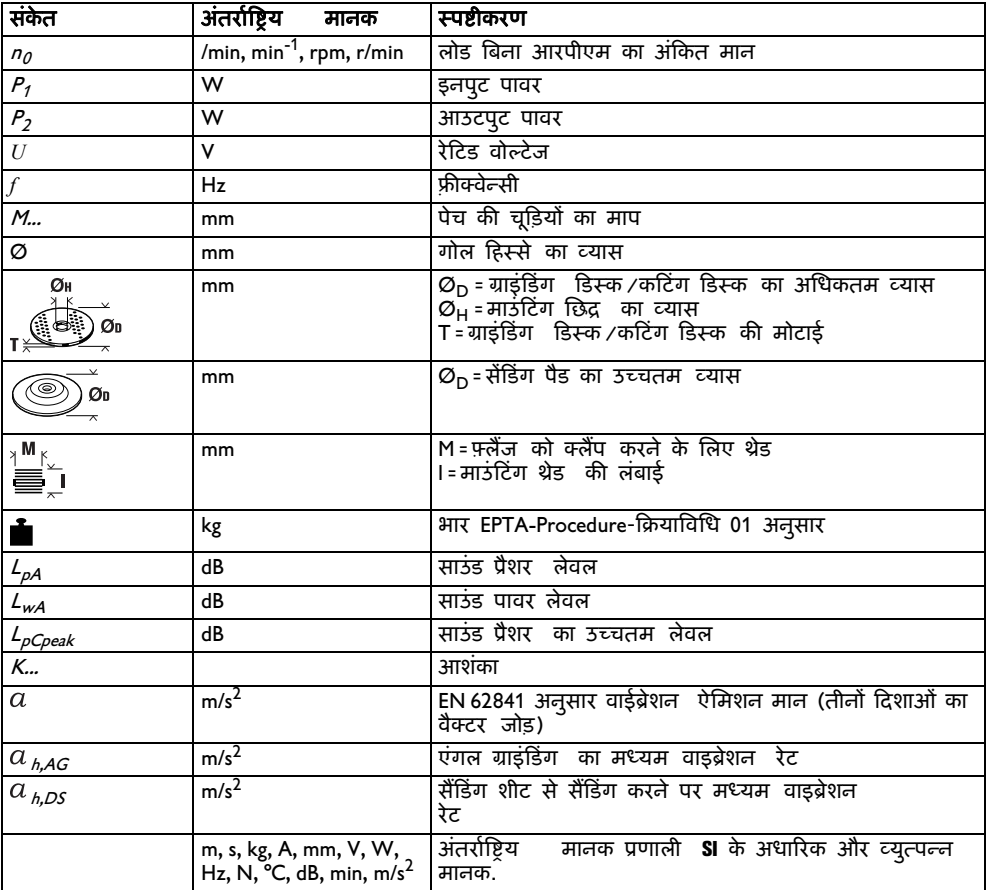 संकेत अंतर्राष्ट्रिय मानक स्पष्टीकरण
n0 /min, min-1, rpm, r/min लोड बिना आरपीएम का अंकित मान
P1 W इनपुट पावर
P2 W आउटपुट पावर
U V रेटिड वोल्टेज
f Hz फ़्रीक्वेन्सी
M... mm पेच की चूड़ियों का माप
Ø mm गोल हिस्से का व्यास
ØH ØD T mm ØD = ग्राइंडिंग डिस्क/कटिंग डिस्क का अधिकतम व्यास
ØH = माउंटिंग छिद्र का व्यास
T = ग्राइंडिंग डिस्क/कटिंग डिस्क की मोटाई
ØD mm ØD = सेंडिंग पैड का उच्चतम व्यास
M l mm M = फ़्लैंज को क्लैंप करने के लिए थ्रेड
l = माउंटिंग थ्रेड की लंबाई
kg भार EPTA-Procedure-क्रियाविधि 01 अनुसार
LpA dB साउंड प्रैशर लेवल
LwA dB साउंड पावर लेवल
LpCpeak dB साउंड प्रैशर का उच्चतम लेवल
K... आशंका
a m/s2 EN 62841 अनुसार वाईब्रेशन ऐमिशन मान (तीनों दिशाओं का
वैक्टर जोड़)
a h,AG m/s2 एंगल ग्राइंडिंग का मध्यम वाइब्रेशन रेट
a h,DS m/s2 सैंडिंग शीट से सैंडिंग करने पर मध्यम वाइब्रेशन
रेट
m, s, kg, A, mm, V, W, अंतर्राष्ट्रिय मानक प्रणाली SI के अधारिक और व्युत्पन्न
Hz, N, °C, dB, min, m/s2 मानक.